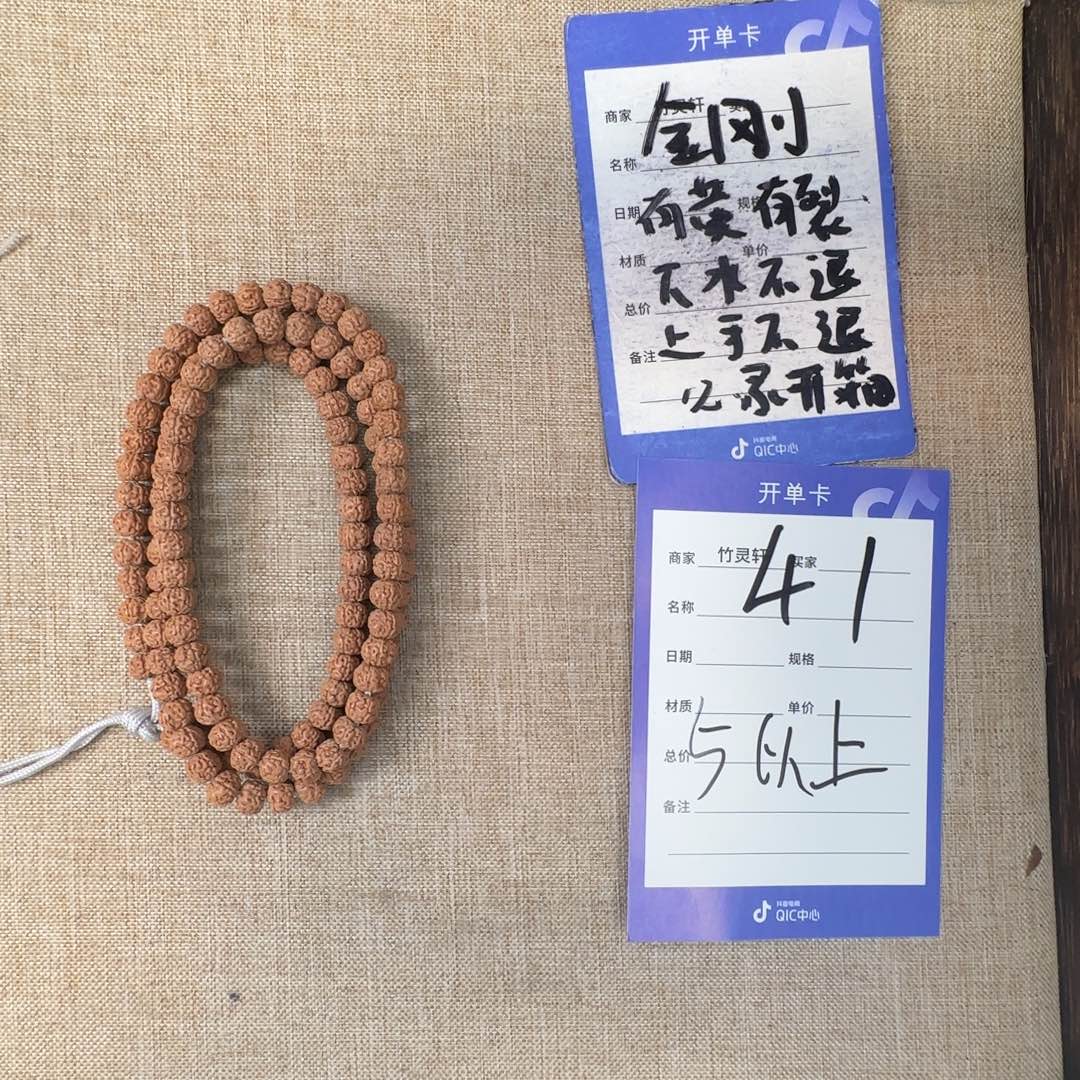 开单卡
商家 竹灵轩
金刚
名称
日期 规格
有黄有裂
材质 单价
下水不退
总价
上手不退
备注
必录开箱
抖音电商
QIC中心
开单卡
商家 竹灵轩 买家
41
名称
日期 规格
材质 单价
5以上
总价
备注
抖音电商
QIC中心